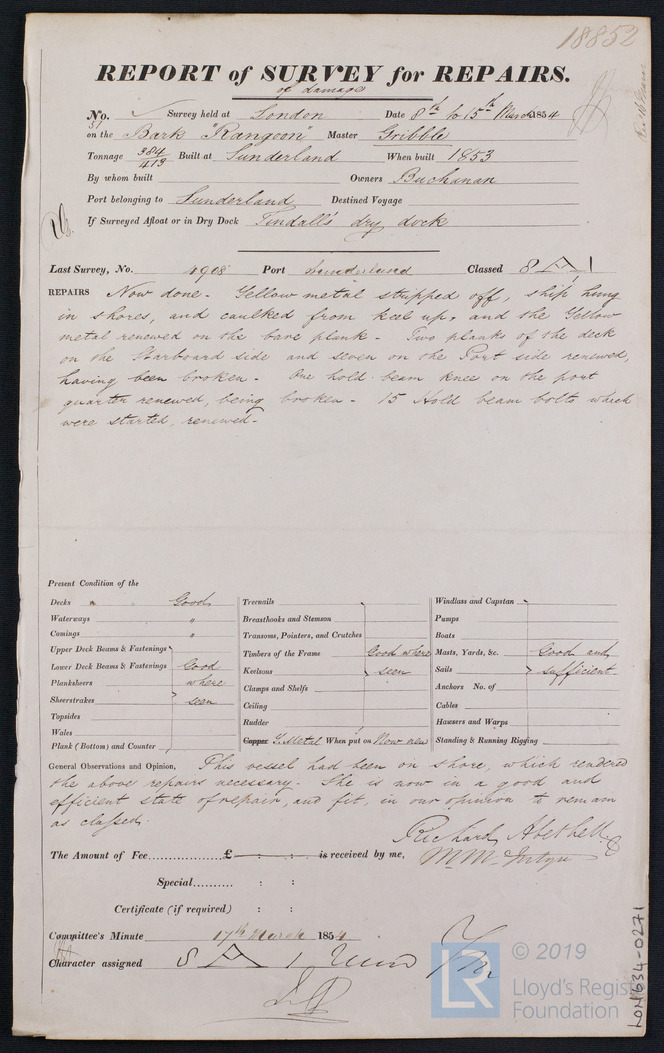 18852
REPORT of SURVEY for REPAIRS.
of damage
No. Survey held at London Date 8th to 15th March 1854
on the Bark "Rangoon" Master Gribble
Tonnage 384/413 Built at Sunderland When built 1853
By whom built Owners Buchanan
Port belonging to Sunderland Destined Voyage
If Surveyed Afloat or in Dry Dock Tindall's dry dock
Last Survey, No. 4908 Port Sunderland Classed 8 A 1
REPAIRS Now done - Yellow metal stripped off, ship hung
in shores, and caulked from keel up, and the Yellow
metal renewed on the bare plank - Two planks of the deck
on the Starboard side and seven on the Port side renewed,
having been broken - One hold beam knee on the port
quarter renewed, being broken - 15 Hold beam bolts which
were started, renewed.
Present Condition of the
Decks Good
Waterways "
Comings "
Upper Deck Beams & Fastenings
Lower Deck Beams & Fastenings Good
Planksheers where
Sheerstrakes seen
Topsides
Wales
Plank (Bottom) and Counter
Treenails
Breasthooks and Stemson
Transoms, Pointers, and Crutches
Timbers of the Frame Good where
Keelsons seen
Clamps and Shelfs
Ceiling
Rudder
Copper Y. Metal When put on Now new
Windlass and Capstan
Pumps
Boats
Masts, Yards, &c. Good and
Sails sufficient
Anchors No. of
Cables
Hawsers and Warps
Standing & Running Rigging
General Observations and Opinion, This vessel had been on shore, which rendered
the above repairs necessary. She is now in a good and
efficient state of repair, and fit, in our opinion to remain
as classed.
Richard Abethell
The Amount of Fee £ : : is received by me,
Special : :
Certificate (if required) : :
Committee's Minute 17th March 1854
Character assigned 8 A 1
© 2019
LR
Lloyd's Register
Foundation
LON634-0271